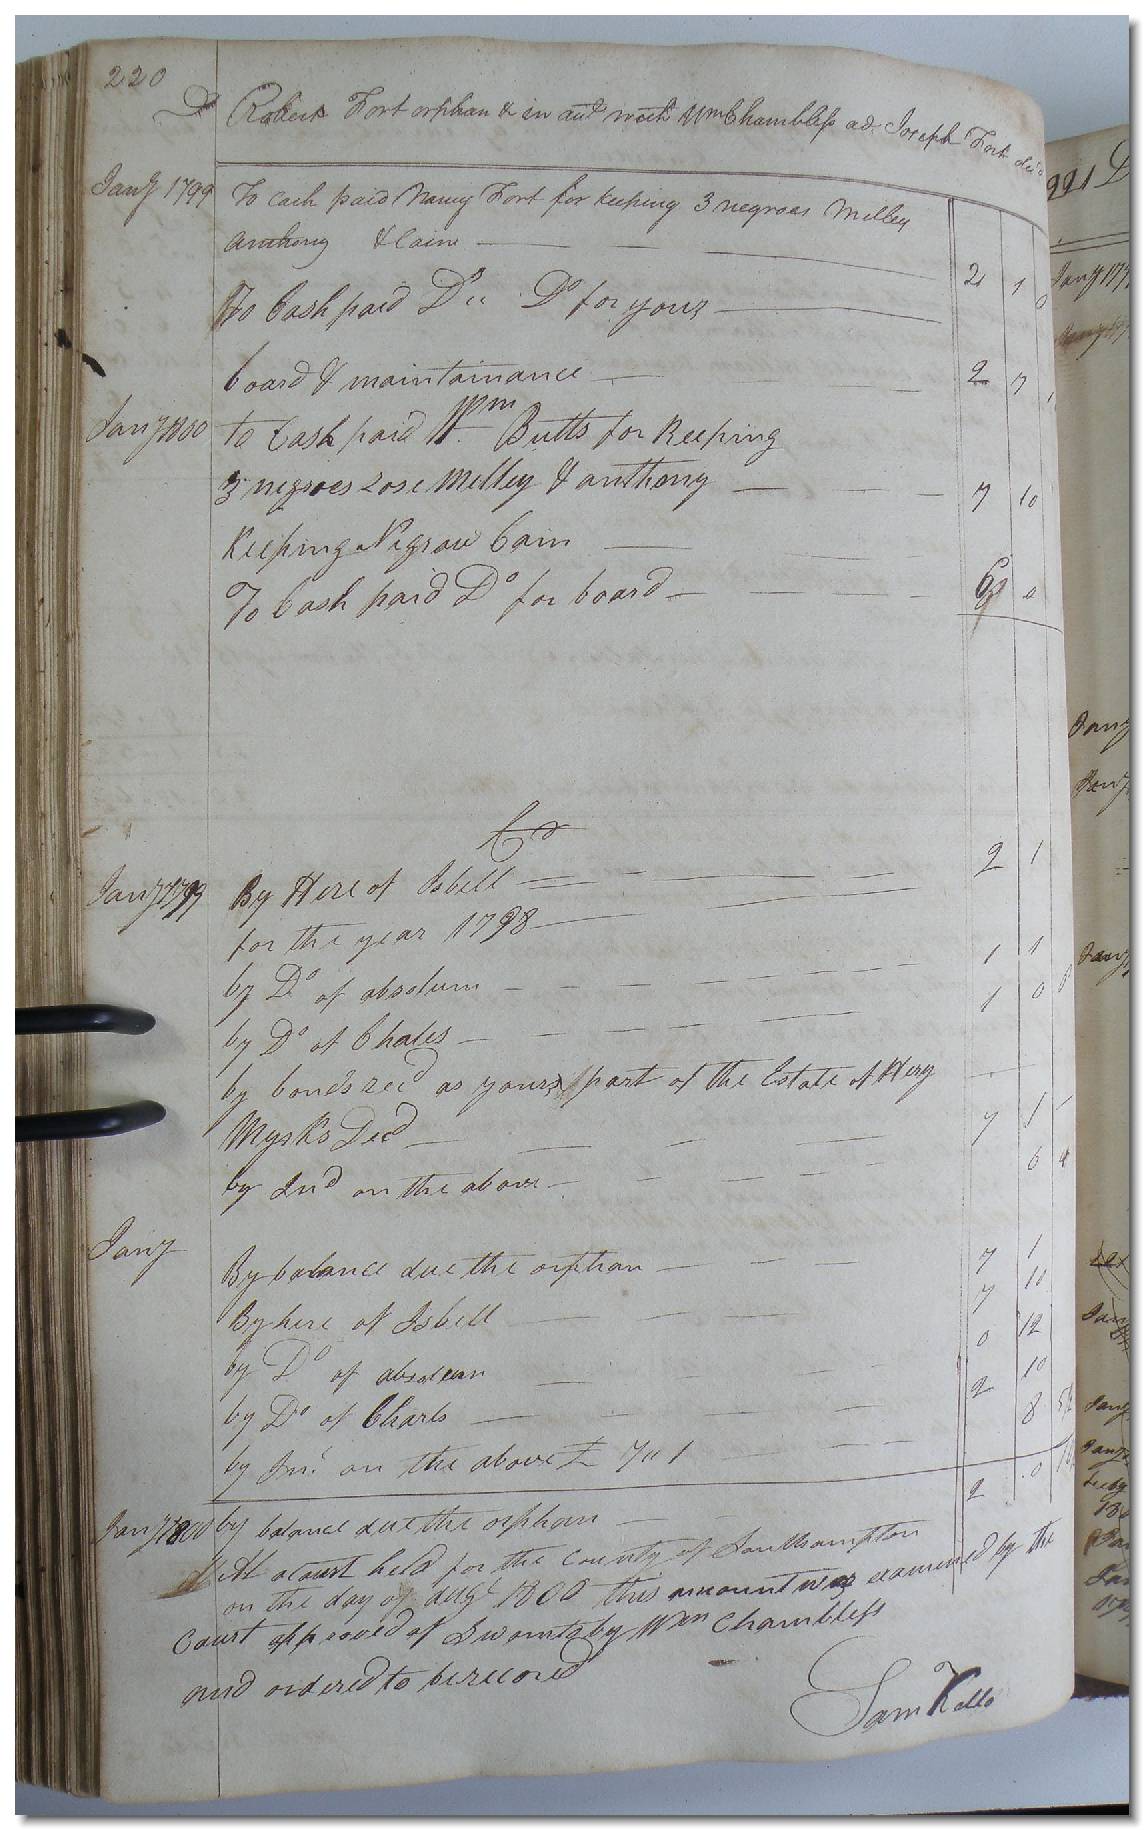 220
Dr Robert Fort orphan & in acct with Wm Chambless ad. Joseph Fort decd
Jany 1799 To Cash paid Nancy Fort for keeping 3 negroes Milley
Anthony & Cain 2 1 0
To Cash paid Do Do for your
board & maintainance 2 7
Jany 1800 to Cash paid Wm Butts for Keeping
3 negroes Rose Milley & anthony 7 10
Keeping Negrow Cain
To Cash paid Do for board 0
Cr
Jany 1799 By Hire of Isbell 2 1
for the year 1798
by Do of absolum 1 1
by Do of Chales 1 0
by bonds recd as yours part of the Estate of Hery
Myrks Decd 7 1
by Ind on the above 6 4
Jany
By balance due the orphan 7 1
By hire of Isbell 7 10
by Do of absolum 0 12
by Do of Charls 2 10
by Int on the above £ 7 " 1 8
Jany 1800 by balance due the orphan 2 0
At a Court held for the County of Southampton
on the day of augt 1800 this amount was examined by the
Court approved of Sworn to by Wm Chambless
and ordered to be recored
Sam Kello
221 D
Jany 179
Jany
Jany
Jany